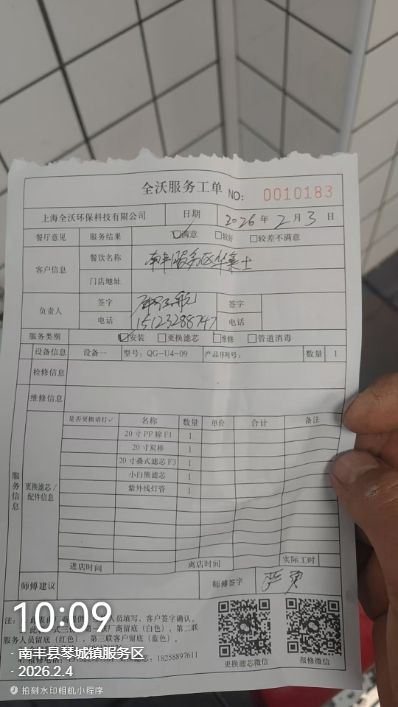 全沃服务工单 NO: 0010183
上海全沃环保科技有限公司 日期 2026年2月3日
餐厅意见 服务结果 ☑满意 □较好 □较差不满意
客户信息 餐饮名称 南丰服务区华莱士
门店地址
负责人 签字 签字
电话 15123288747 电话
服务类别 ☑安装 □更换滤芯 □维修 □管道消毒
设备信息 设备一 型号: QG-U4-09 产品序列号: 数量 1
检修信息
维修信息
服务信息 更换滤芯/配件信息 是否更换请打✓ 名称 数量 单价 合计 备注
20寸PP棉F1 1
20寸炭棒 1
20寸叠式滤芯F3 1
小白熊滤芯 1
紫外线灯管 1
进店时间 离店时间 实际工时
师傅建议 师傅签字
注:
人员填写、客户签字确认。
商留底(白色)、第二联
服务人员留底(红色)、第三联客户留底(蓝色)。
18258897611
更换滤芯微信 报修微信
10:09
南丰县琴城镇服务区
2026.2.4
拍刻水印相机小程序